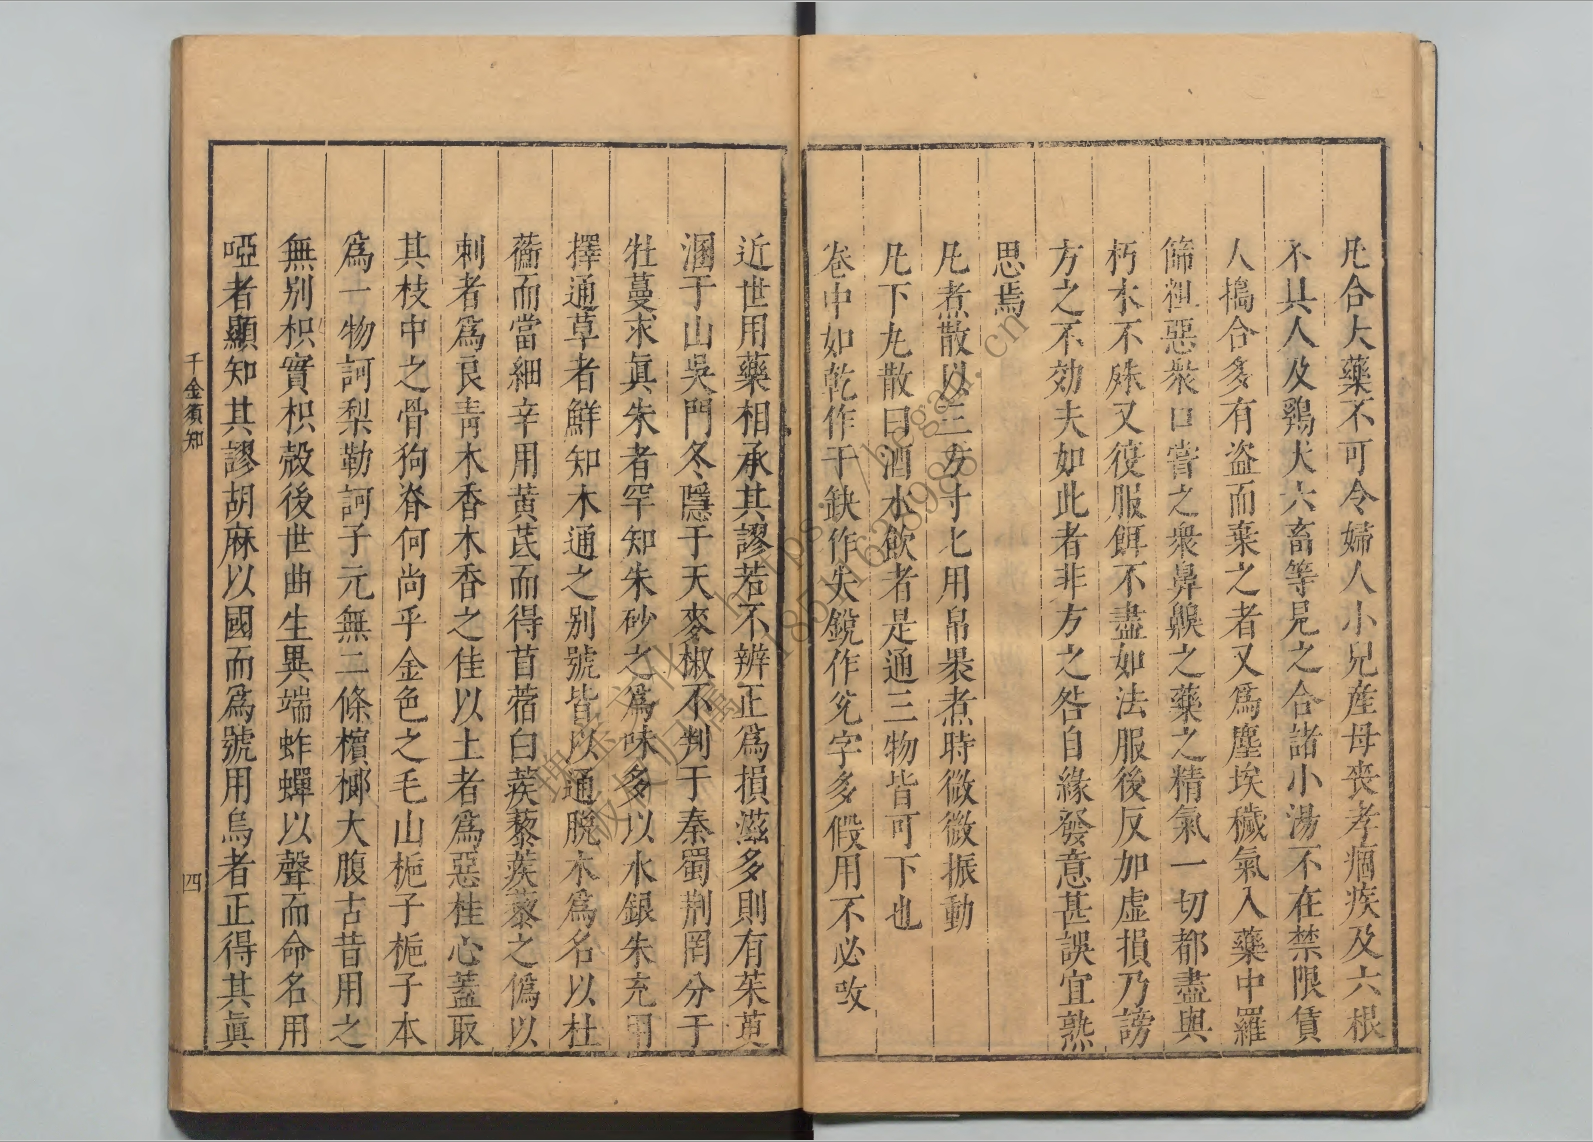 凡合大藥不可令婦人小兒産母喪孝痼疾及六根
不具人及鷄犬六畜等見之合諸小湯不在禁限賃
人搗合多有盗而棄之者又爲塵埃穢氣入藥中羅
篩粗惡衆口嘗之衆鼻齅之藥之精氣一切都盡與
朽木不殊又復服餌不盡如法服後反加虚損乃謗
方之不効夫如此者非方之咎自緣發意甚誤宜熟
思焉
凡煮散以三方寸匕用帛裹煮時微微振動
凡下丸散曰酒水飲者是通三物皆可下也
卷中如乾作干缺作失銳作兊字多假用不必改
近世用藥相承其謬若不辨正爲損滋多則有茱萸
溷于山吳門冬隱于天麥椒不判于秦蜀荆罔分于
牡蔓求真朱者罕知朱砂之爲味多以水銀朱充用
擇通草者鮮知木通之别號皆以通脫木爲名以杜
蘅而當細辛用黄芪而得苜蓿白蒺藜蒺藜之僞以
刺者爲良靑木香木香之佳以土者爲惡桂心蓋取
其枝中之骨狗脊何尚乎金色之毛山梔子梔子本
爲一物訶梨勒訶子元無二條檳榔大腹古昔用之
無别枳實枳殻後世曲生異端蚱蟬以聲而命名用
啞者顯知其謬胡麻以國而爲號用烏者正得其眞
千金須知
四